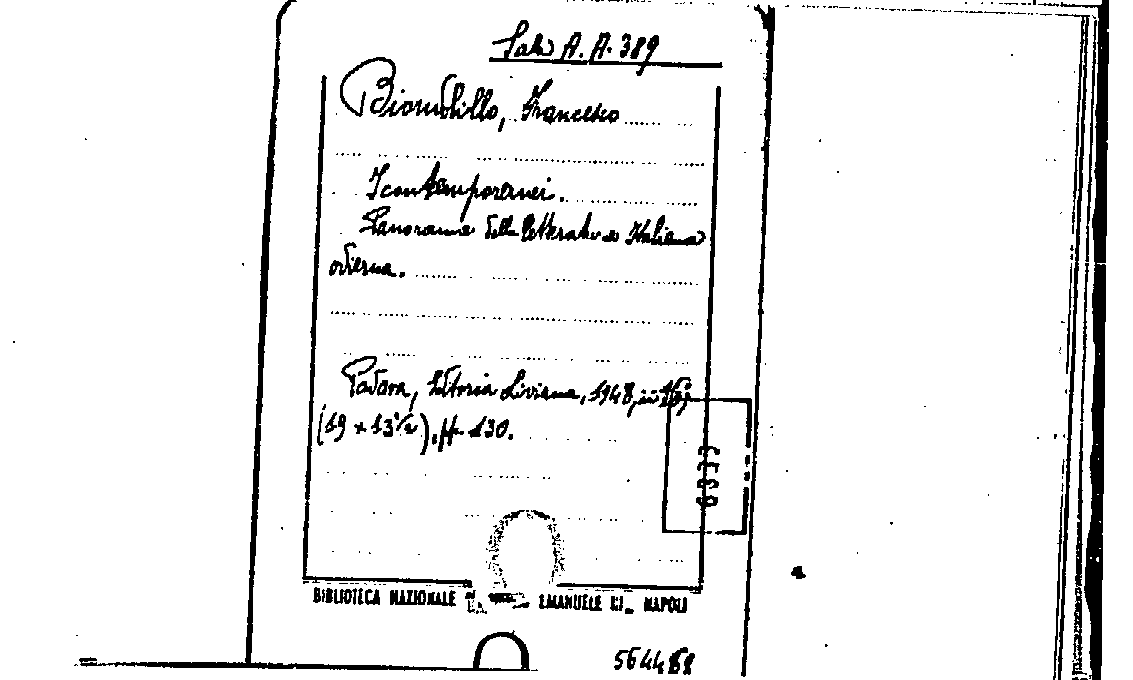 Sala A. A. 389
Biondolillo, Francesco
I contemporanei.
Panorama della letteratura Italiana
odierna.
Padova, Editoria Liviana, 1948, in 16°,
(19 x 13½), pp. 130.
BIBLIOTECA NAZIONALE EMANUELE III_ NAPOLI